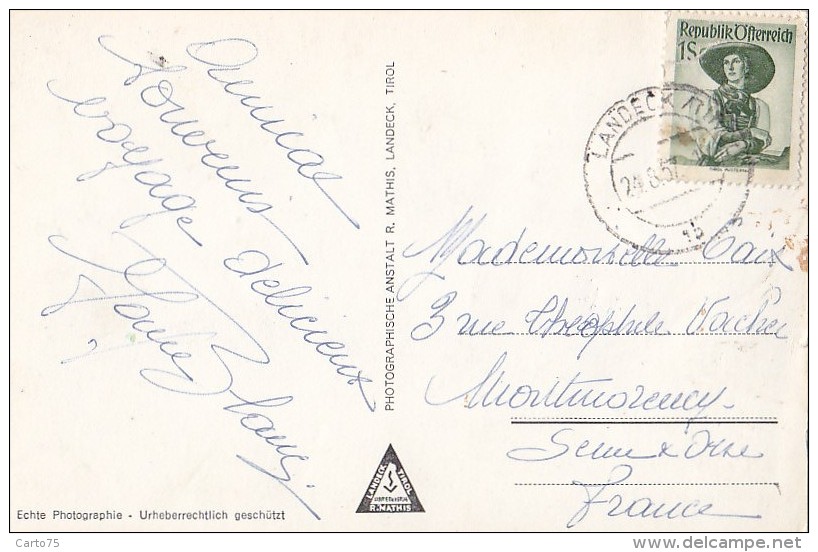 Amical
souvenir
voyage délicieux
Republik Österreich
1S
LANDECK
24.8.5
Mademoiselle
3 rue Théophile Vacher
Montmorency
Seine & Oise
France
PHOTOGRAPHISCHE ANSTALT R. MATHIS, LANDECK, TIROL
LANDECK TIROL
R. MATHIS
Echte Photographie - Urheberrechtlich geschützt
Carto75
delcampe.net